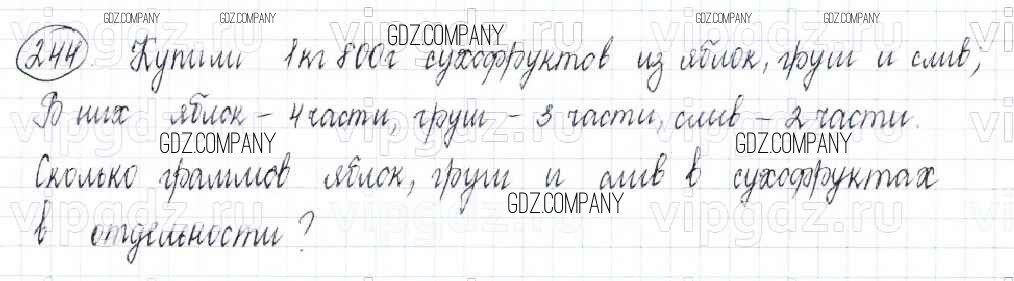 GDZ.COMPANY GDZ.COMPANY GDZ.COMPANY GDZ.COMPANY
GDZ.COMPANY
244. Купили 1 кг 800 г сухофруктов из яблок, груш и слив;
В них яблок - 4 части, груш - 3 части, слив - 2 части.
GDZ.COMPANY GDZ.COMPANY
Сколько граммов яблок, груш и слив в сухофруктах
GDZ.COMPANY
в отдельности?
vipgdz.ru vipgdz.ru vipgdz.ru